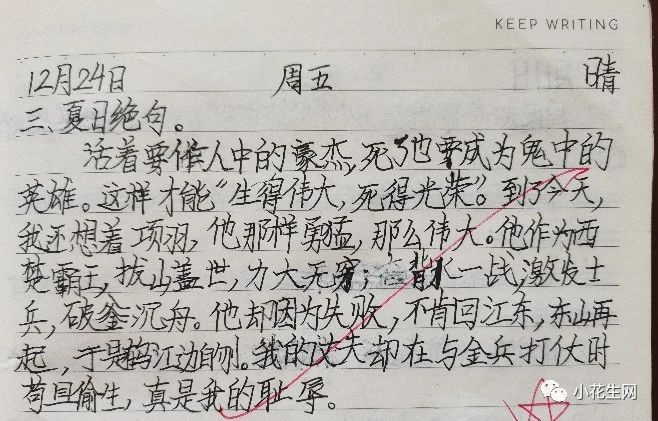 KEEP WRITING
12月24日 周五 晴
三、夏日绝句。
活着要作人中的豪杰，死了也要成为鬼中的
英雄。这样才能“生得伟大，死得光荣”。到了今天，
我还想着项羽，他那样勇猛，那么伟大。他作为西
楚霸王，拔山盖世，力大无穷；背水一战，激发士
兵，破釜沉舟。他却因为失败，不肯回江东，东山再
起，于是乌江边自刎。我的丈夫却在与金兵打仗时
苟且偷生，真是我的耻辱。
小花生网